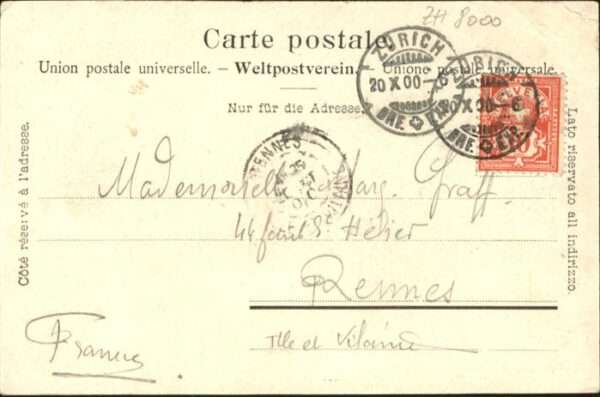 ZH 8000
Carte postale
Union postale universelle. — Weltpostverein. — Unione postale universale.
Nur für die Adresse.
ZÜRICH
20 X 00
BRE. EXP.
ZÜRICH
20 X 00-6
BRE. EXP.
RENNES
Côté réservé à l'adresse.
Lato riservato all indirizzo.
Mademoiselle Marg. Graff
44 faub St Hélier
Rennes
Ille et Vilaine
France